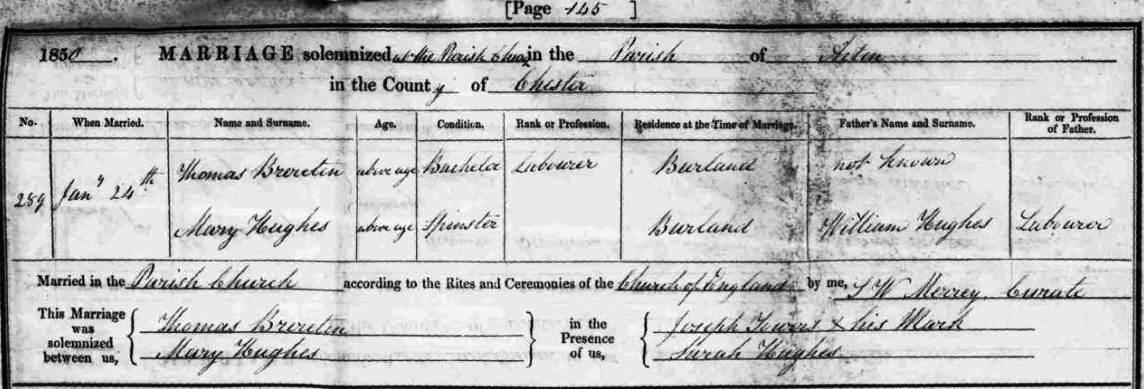 [Page 145 ]
1850. MARRIAGE solemnized at the Parish Church in the Parish of Acton
in the County of Chester
No. When Married. Name and Surname. Age. Condition. Rank or Profession. Residence at the Time of Marriage. Father's Name and Surname. Rank or Profession of Father.
289 Jany 24th Thomas Brereton above age Bachelor Labourer Burland not known
Mary Hughes above age Spinster Burland William Hughes Labourer
Married in the Parish Church according to the Rites and Ceremonies of the Church of England by me, S W Merrey, Curate
This Marriage was solemnized between us, { Thomas Brereton } in the Presence of us, { Joseph Towers x his Mark
Mary Hughes Sarah Hughes